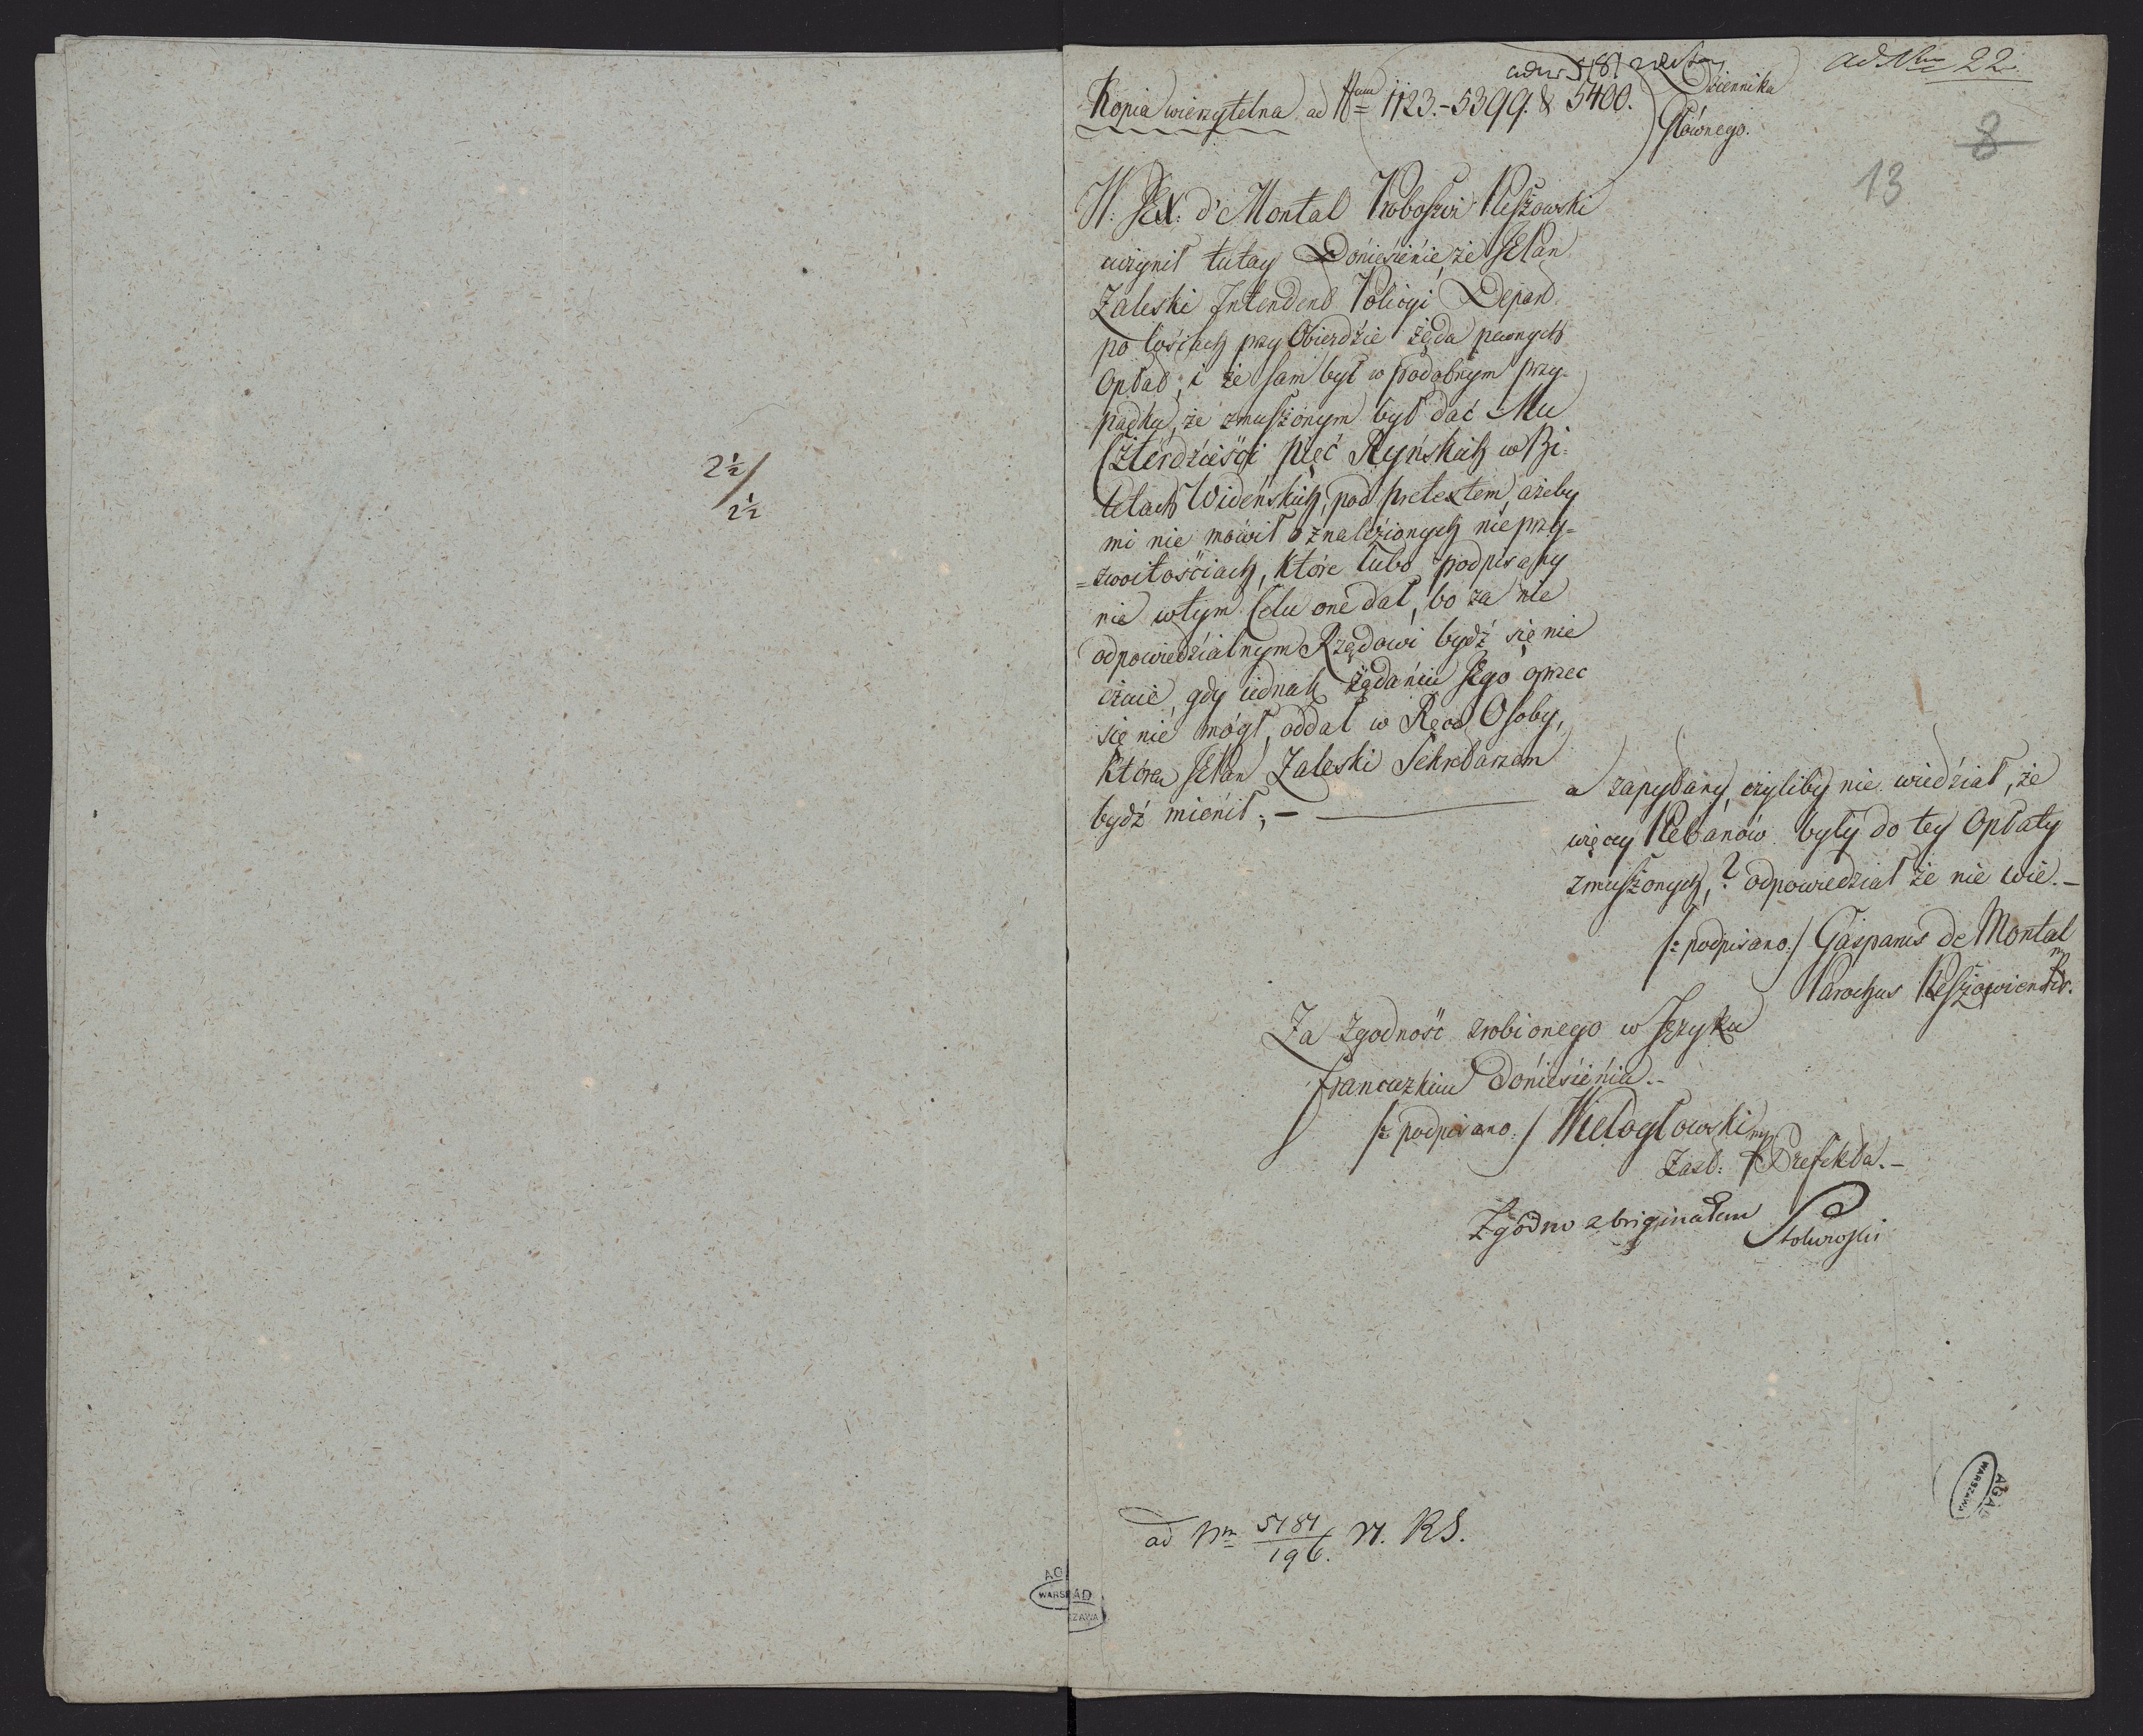 2½/2½
ad Num 22.
Kopia wierzytelna ad Num 1123.-5399. & 5400. Dziennika
Głównego.
8
13
W. JX. d'Montal Proboszcz Pleszowski
uczynił tutay Doniesienie, że JPan
Zaleski Intendent Policyi Depart
po Wsiach przy Obieździe żąda pewnych
Opłat; i że sam był w podobnym przy-
padku, że zmuszonym był dać Mu
Czterdzieści pięć Ryńskich w Bi-
letach Widenskich, pod pretextem, ażeby
mi nie mówił o znalezionych nieprzy=
=zwoitościach, które lubo podpisany
nie w tym Celu one dał, bo za nie
odpowiedzialnym Rządowi bydź się nie
czuie, gdy iednak żądaniu Jego oprzec
się nie mógł, oddał w Ręce Osoby,
którą JPan Zaleski Sekretarzem
bydź mienił; —
a zapytany, czyliby nie wiedział, że
więcey Plebanów były do tey Opłaty
zmuszonych,? odpowiedział że nie wie.-
/: podpisano:/ Gasparus de Montal
Parochus Pleszowiensis. mp
Za Zgodność zrobionego w Języku
francuzkim Doniesienia.-
/: podpisano:/ Wielogłowski mp
Zast: Prefekta.-
Zgodno z Originałem
ad Nm 5181/196. N. RS.
AGAD
WARSZAWA
AGAD
WARSZAWA